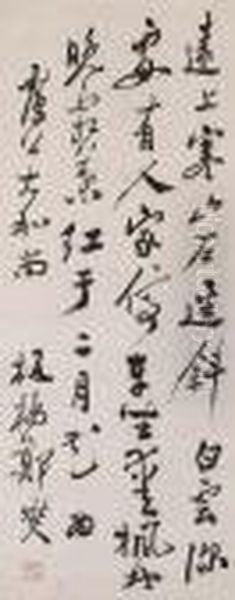 遠上寒山石逕斜白雲深
處有人家停車坐愛楓林
晚霜葉紅于二月花
大和尚 板橋鄭燮